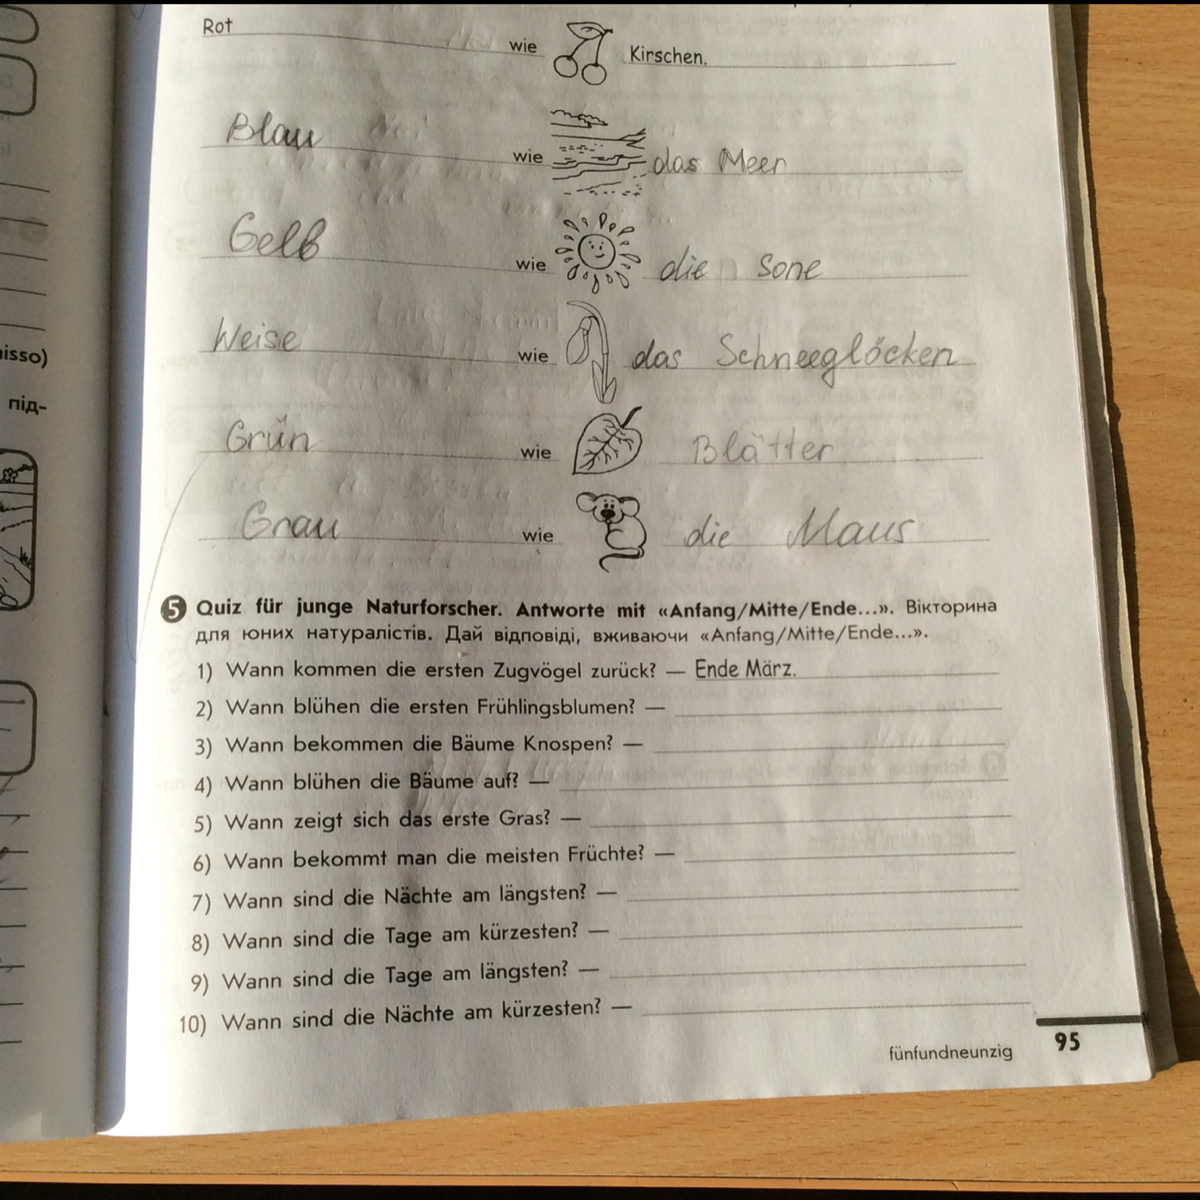 Rot wie Kirschen.
Blau wie das Meer
Gelb wie die Sone
isso)
Weise wie das Schneeglöcken
під-
Grün wie Blätter
Grau wie die Maus
5 Quiz für junge Naturforscher. Antworte mit «Anfang/Mitte/Ende...». Вікторина
для юних натуралістів. Дай відповіді, вживаючи «Anfang/Mitte/Ende...».
1) Wann kommen die ersten Zugvögel zurück? — Ende März.
2) Wann blühen die ersten Frühlingsblumen? —
3) Wann bekommen die Bäume Knospen? —
4) Wann blühen die Bäume auf? —
5) Wann zeigt sich das erste Gras? —
6) Wann bekommt man die meisten Früchte? —
7) Wann sind die Nächte am längsten? —
8) Wann sind die Tage am kürzesten? —
9) Wann sind die Tage am längsten? —
10) Wann sind die Nächte am kürzesten? —
fünfundneunzig 95